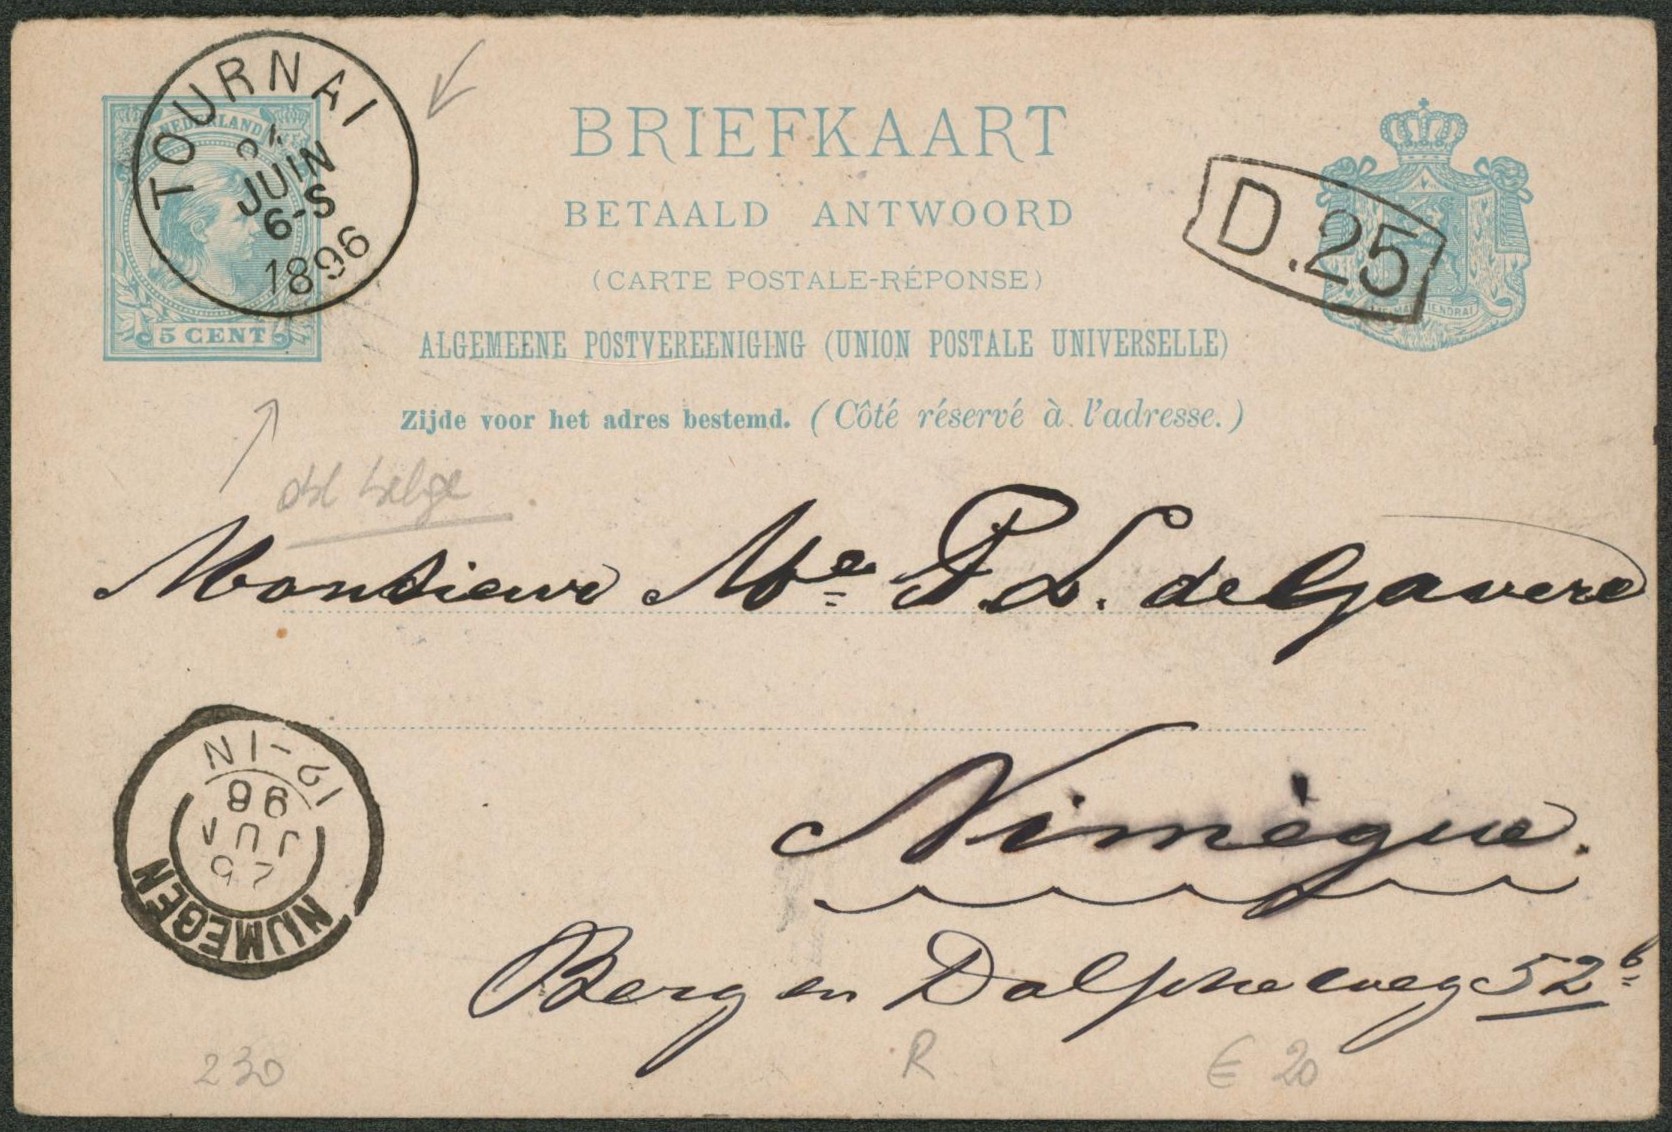 TOURNAI
JUIN
6-S
1896
NEDERLAND
5 CENT
BRIEFKAART
BETAALD ANTWOORD
(CARTE POSTALE-RÉPONSE)
ALGEMEENE POSTVEREENIGING (UNION POSTALE UNIVERSELLE)
Zijde voor het adres bestemd. (Côté réservé à l'adresse.)
D.25
belge
Monsieur Me P. L. de Gavere
Nimègue.
Berg en Dalsche weg 52 b
NIJMEGEN
96
12-1N
230
R
€ 20